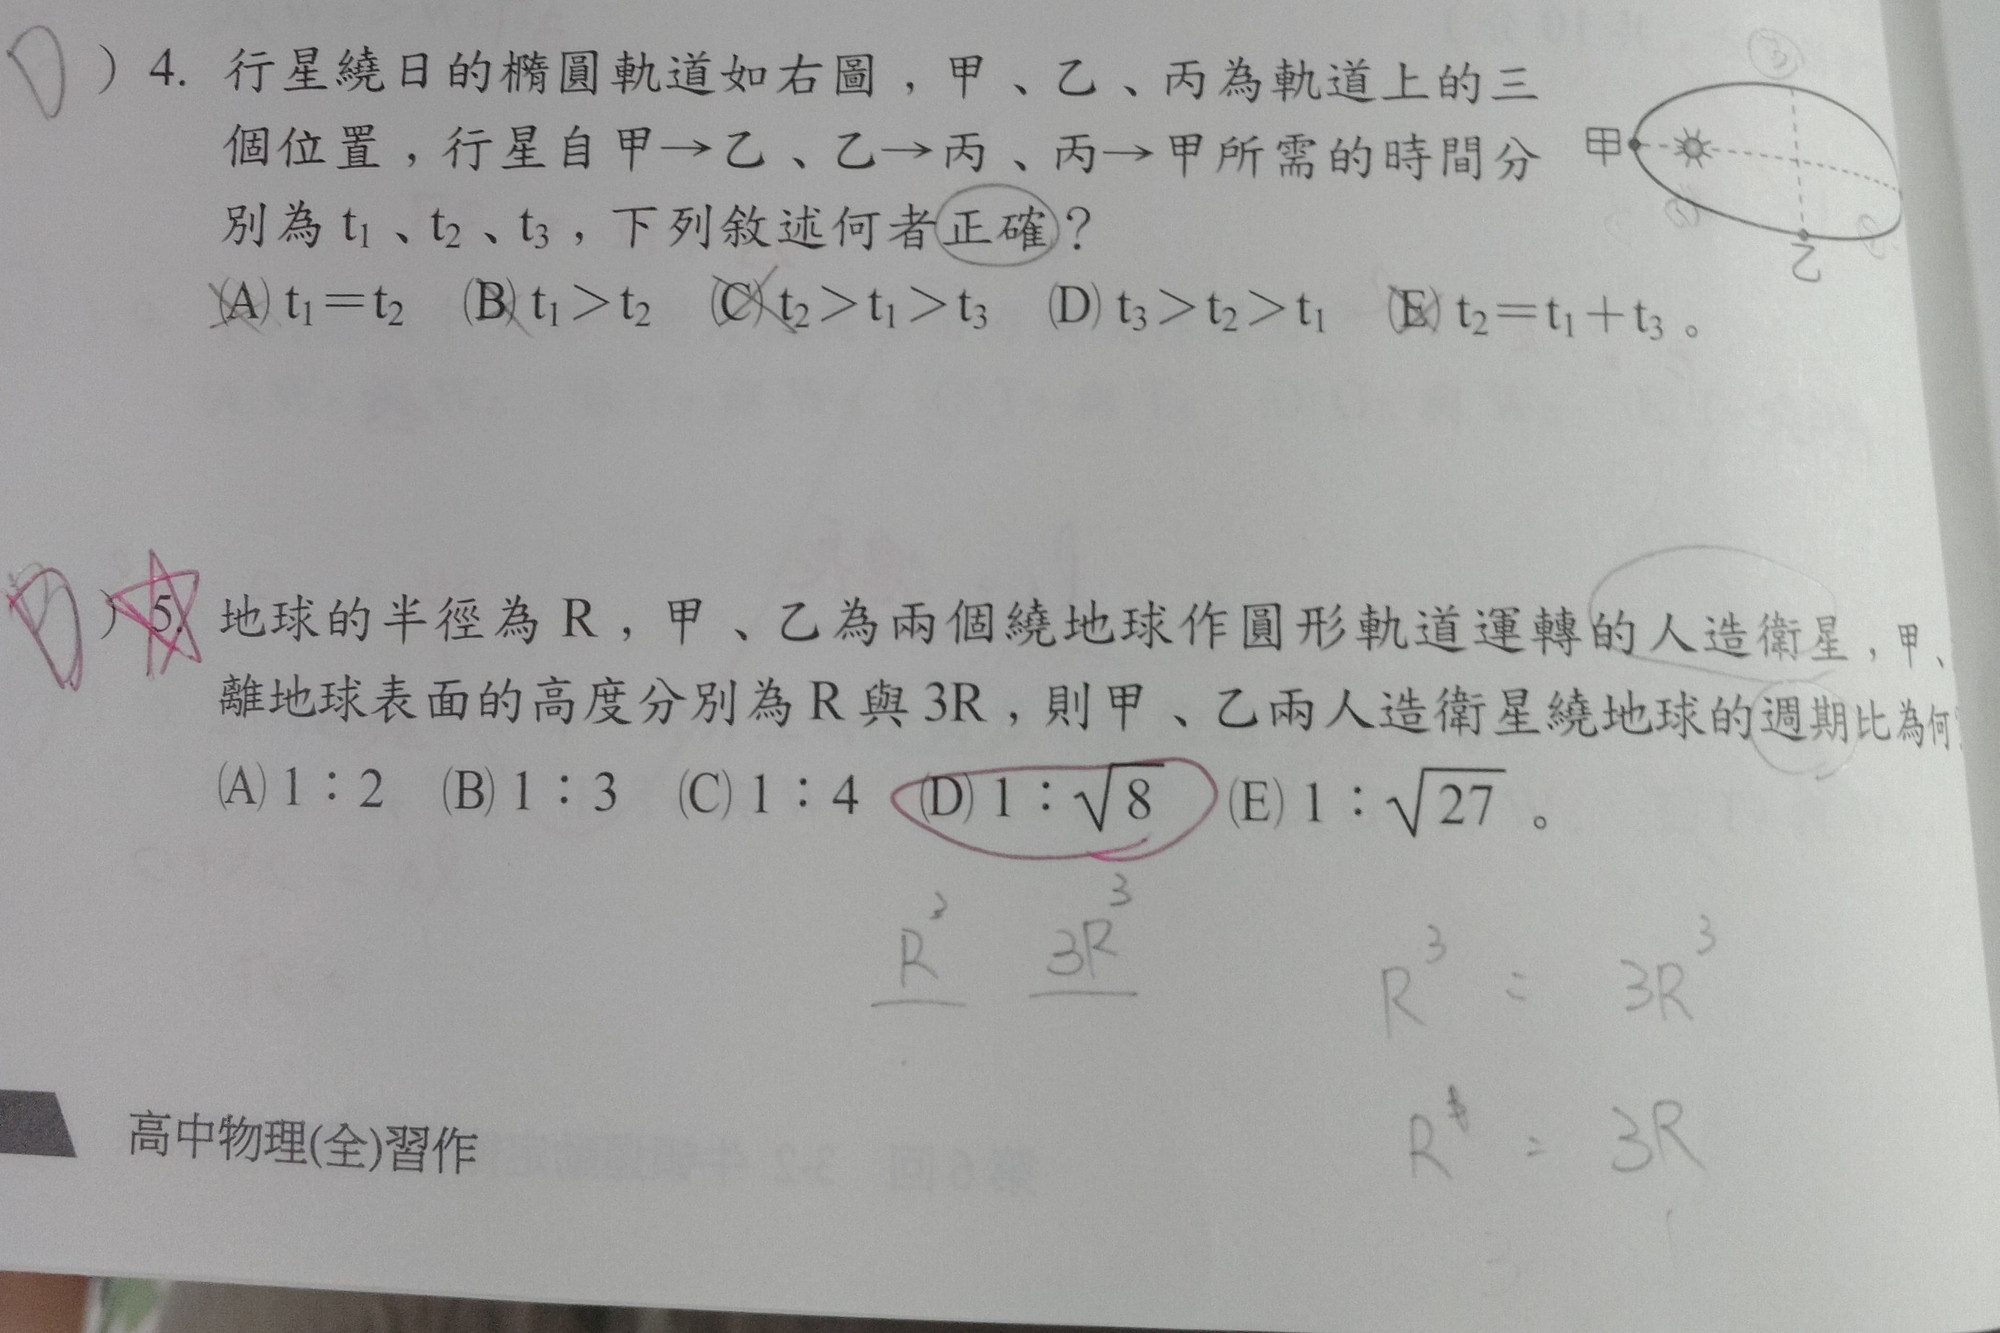 D ) 4. 行星繞日的橢圓軌道如右圖，甲、乙、丙為軌道上的三
個位置，行星自甲→乙、乙→丙、丙→甲所需的時間分
別為 t₁、t₂、t₃，下列敘述何者正確？
(A) t₁＝t₂ (B) t₁＞t₂ (C) t₂＞t₁＞t₃ (D) t₃＞t₂＞t₁ (E) t₂＝t₁＋t₃。
甲
乙
D ) 5. 地球的半徑為 R，甲、乙為兩個繞地球作圓形軌道運轉的人造衛星，甲、
離地球表面的高度分別為 R 與 3R，則甲、乙兩人造衛星繞地球的週期比為何
(A) 1：2 (B) 1：3 (C) 1：4 (D) 1：√8 (E) 1：√27。
R³ 3R³
R³ = 3R³
R = 3R
高中物理(全)習作